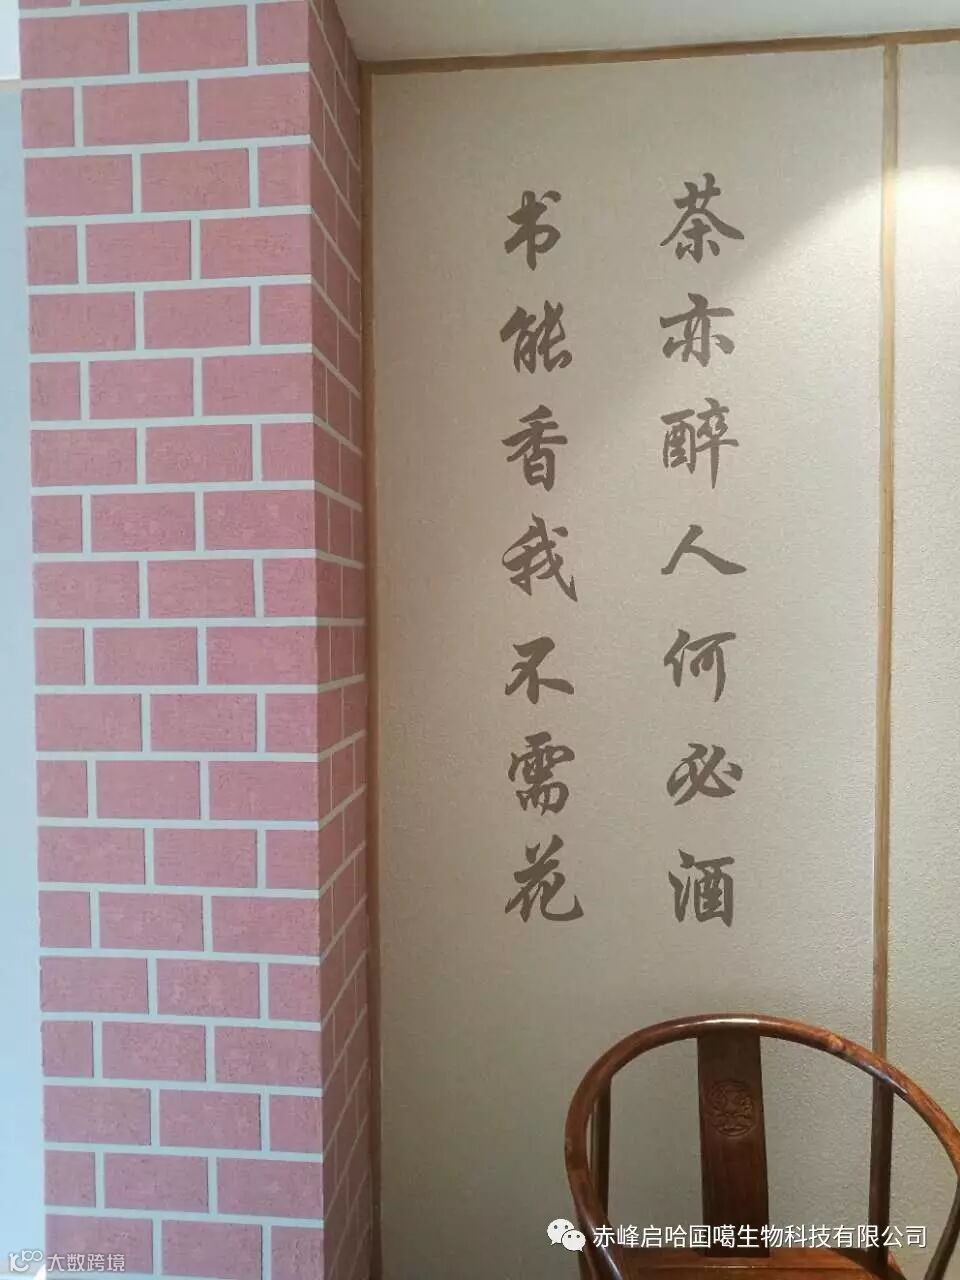 茶亦醉人何必酒
书能香我不需花
赤峰启哈囯噶生物科技有限公司
大数跨境